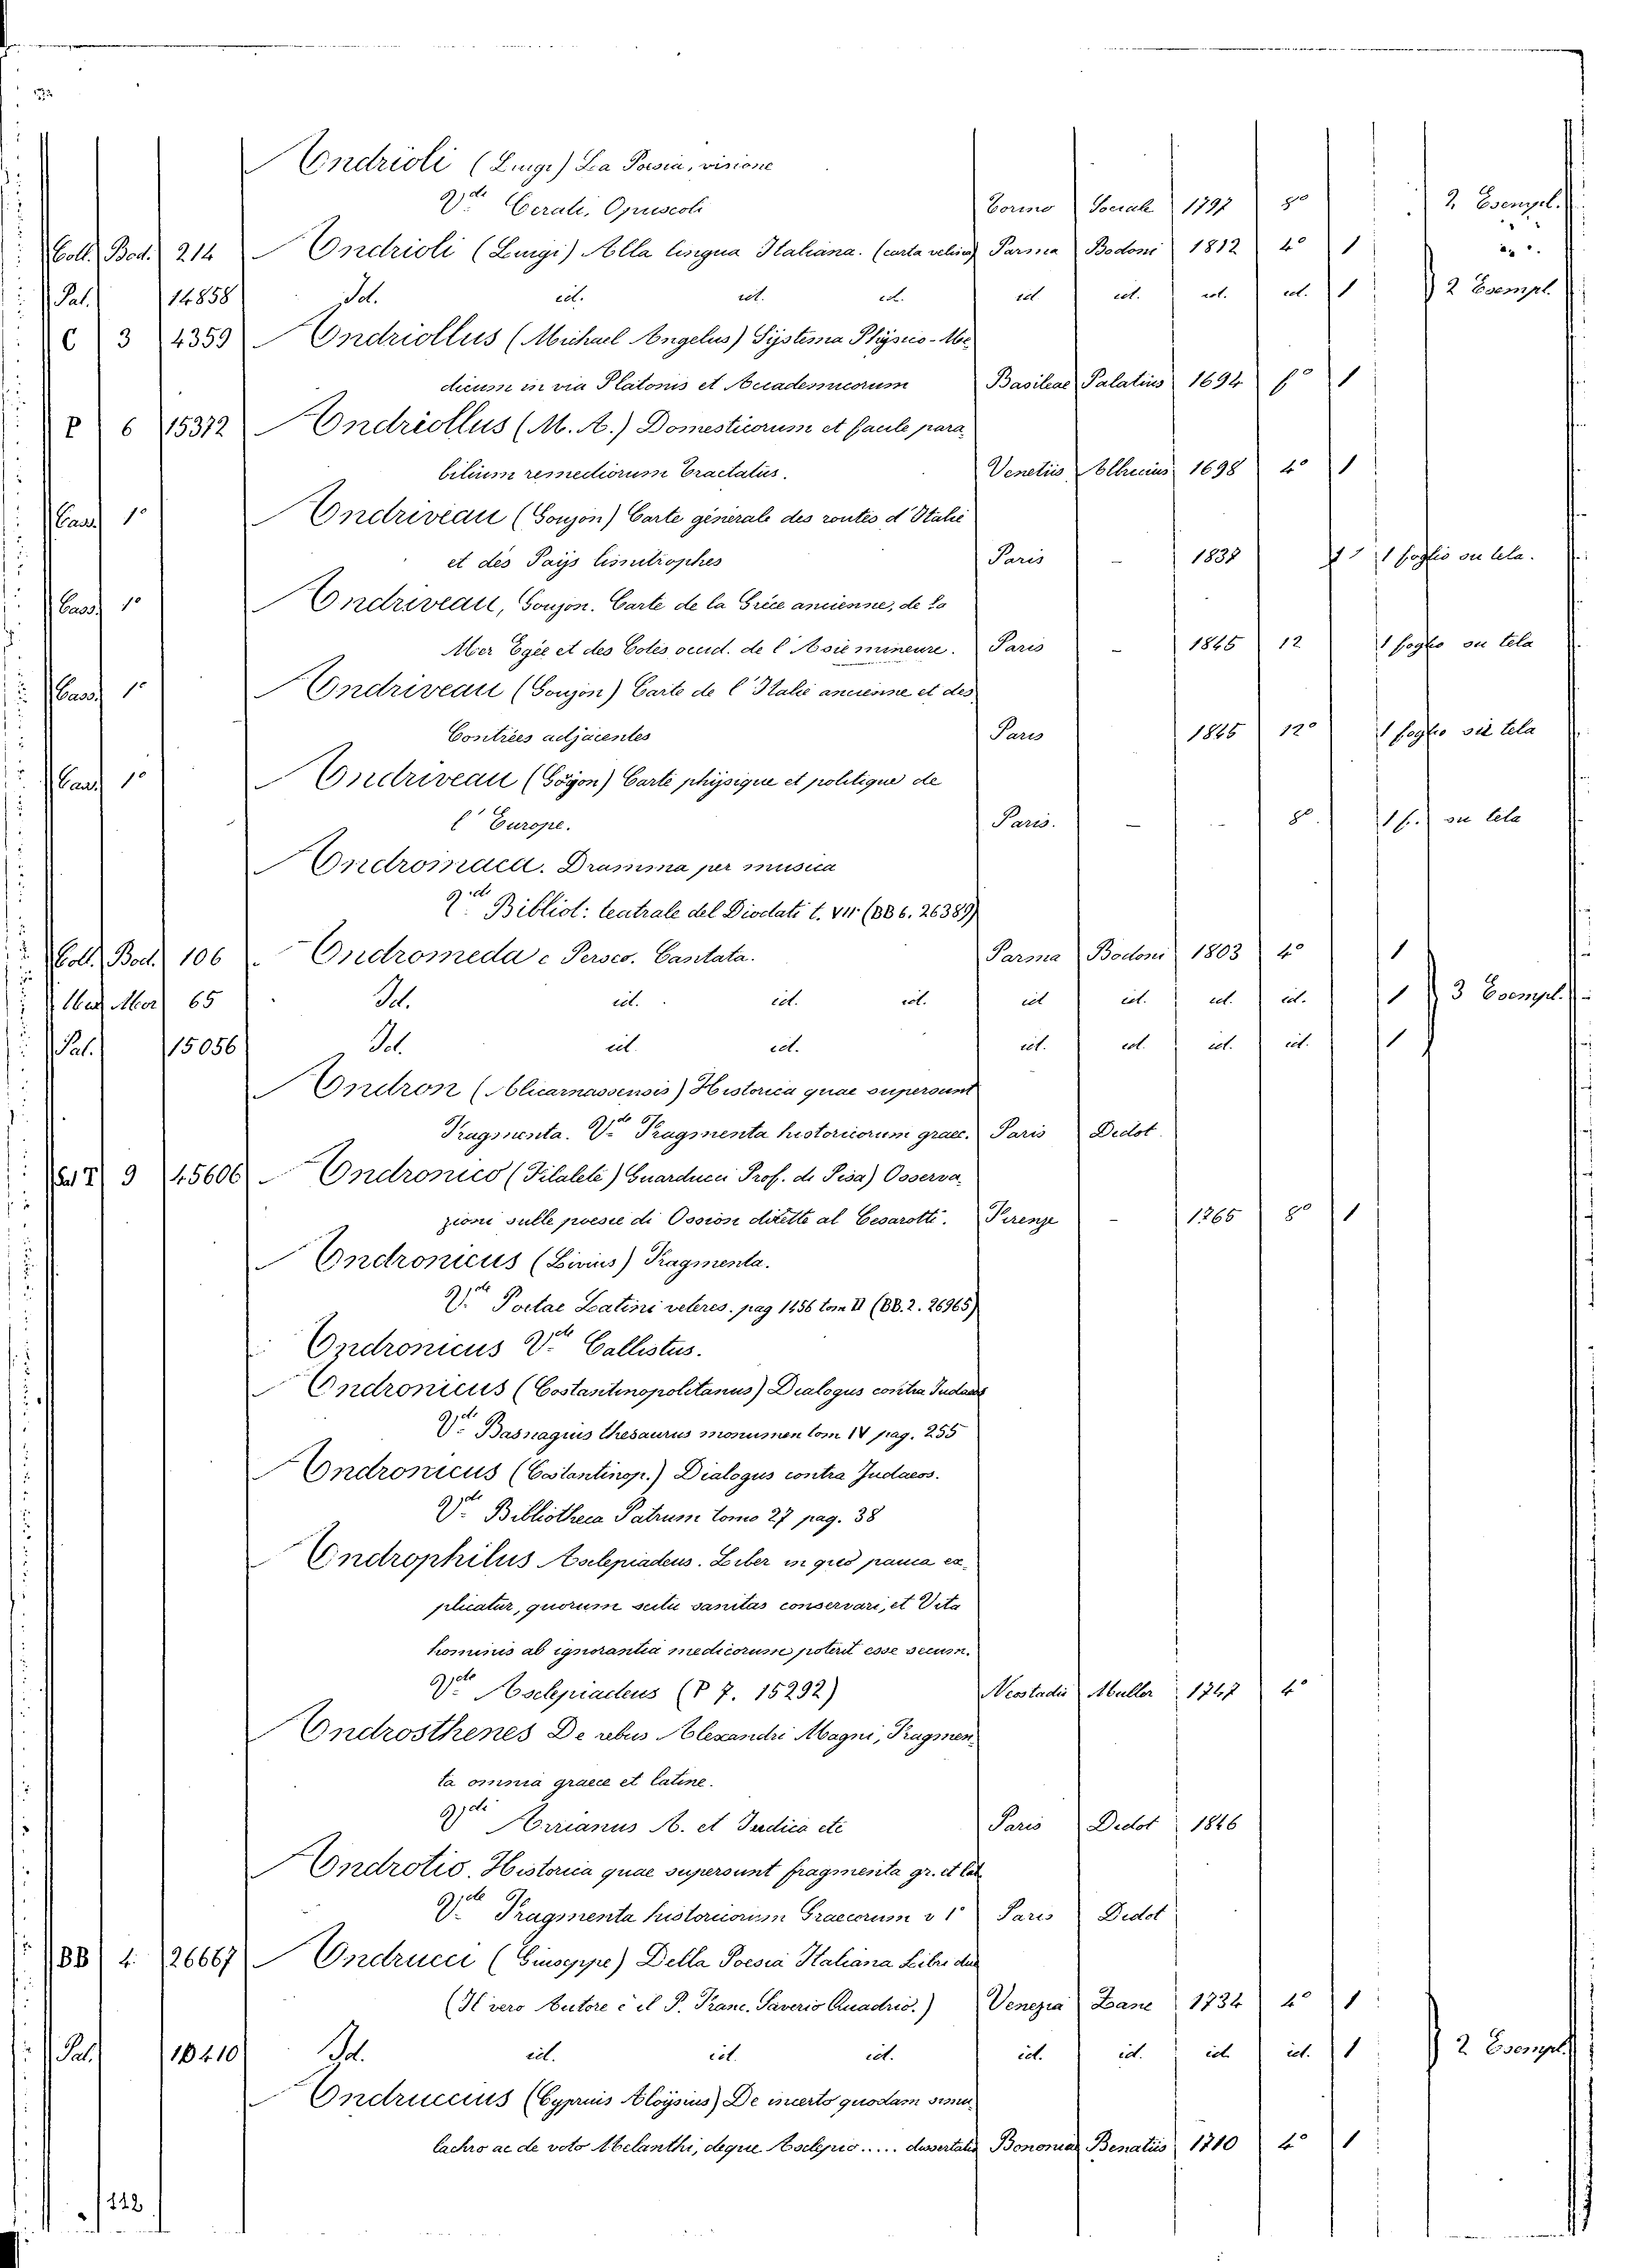 Andrioli (Luigi) La Poesia, visione
Vde Cerati, Opuscoli Torino Sociale 1797 8o 2 Esempl.
Coll. Bod. 214 Andrioli (Luigi) Alla lingua Italiana. (carta velina) Parma Bodoni 1812 4o 1
Pal. 14858 Id. id. id. id. id id. id. id. 1 2 Esempl.
C 3 4359 Andriollus (Michael Angelus) Systema Physico-Me
dicum in via Platonis et Accademicorum Basileae Palatius 1694 fo 1
P 6 15372 Andriollus (M. A.) Domesticorum et facile para
bilium remediorum Tractatus. Venetiis Albricius 1698 4o 1
Cass. 1o Andriveau (Goujon) Carte génerale des routes d'Italie
et des Pays limitrophes Paris - 1837 1 foglio su tela.
Cass. 1o Andriveau, Goujon. Carte de la Grèce ancienne, de la
Mer Egée et des Cotes occid. de l'Asie mineure. Paris - 1845 12 1 foglio su tela
Cass. 1o Andriveau (Goujon) Carte de l'Italie ancienne et des
Contrées adjacentes Paris 1845 12o 1 foglio su tela
Cass. 1o Andriveau (Gogon) Carte physique et politique de
l'Europe. Paris. - - 8o. 1 f. su tela
Andromaca. Dramma per musica
Vde Bibliot: teatrale del Diodati t. VII. (BB 6. 26389)
Coll. Bod. 106 Andromeda e Perseo. Cantata. Parma Bodoni 1803 4o 1
65 Id. id. id. id. id id. id. id. 1 3 Esempl.
Pal. 15056 Id. id. id. id. id. id. id. 1
Andron (Alicarnassensis) Historica quae supersunt
Fragmenta. Vde Fragmenta historicorum graec. Paris Didot.
9 45606 Andronico (Filalete) Guarducci Prof. di Pisa) Osserva
zioni sulle poesie di Ossion dirette al Cesarotti. Firenze - 1765 8o 1
Andronicus (Livius) Fragmenta.
Vde Poetae Latini veteres. pag 1456 tom II (BB. 2. 26965)
Andronicus Vde Callistus.
Andronicus (Costantinopolitanus) Dialogus contra Judaeos
Vde Basnagius thesaurus monumen tom IV pag. 255
Andronicus (Costantinop.) Dialogus contra Judaeos.
Vde Bibliotheca Patrum tomo 27 pag. 38
Androphilus Asclepiadeus. Liber in quo pauca ex
plicatur, quorum scitu sanitas conservari, et Vita
hominis ab ignorantia medicorum poterit esse secum.
Vde Asclepiadeus (P 7. 15292) Neostadii Muller 1747 4o
Androsthenes De rebus Alexandri Magni, Fragmen
ta omnia graece et latine.
Vdi Arrianus A. et Indica etc Paris Didot 1846
Androtio. Historica quae supersunt fragmenta gr. et lat
Vde Fragmenta historicorum Graecorum v 1o Paris Didot
BB 4. 26667 Andrucci (Giuseppe) Della Poesia Italiana Libri due
(Il vero Autore è il P. Franc. Saverio Quadrio.) Venezia Zane 1734 4o 1
Pal. 10410 Id. id. id. id. id. id. id id. 1 2 Esempl.
Andruccius (Cyprius Aloysius) De incerto quodam simu
lachro ac de voto Melanthi, deque Asclepio..... dissertatio Bononiae Benatius 1710 4o 1